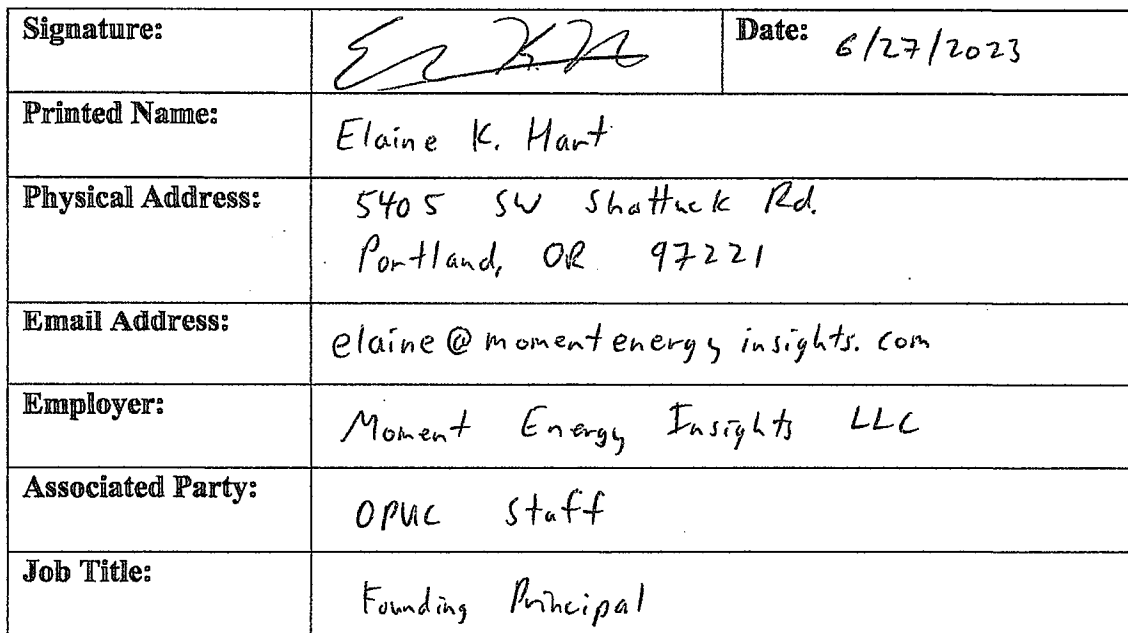 Signature:
Date: 6/27/2023
Printed Name: Elaine K. Hart
Physical Address: 5405 SW Shattuck Rd.
Portland, OR 97221
Email Address: elaine@momentenergyinsights.com
Employer: Moment Energy Insights LLC
Associated Party: OPUC Staff
Job Title: Founding Principal